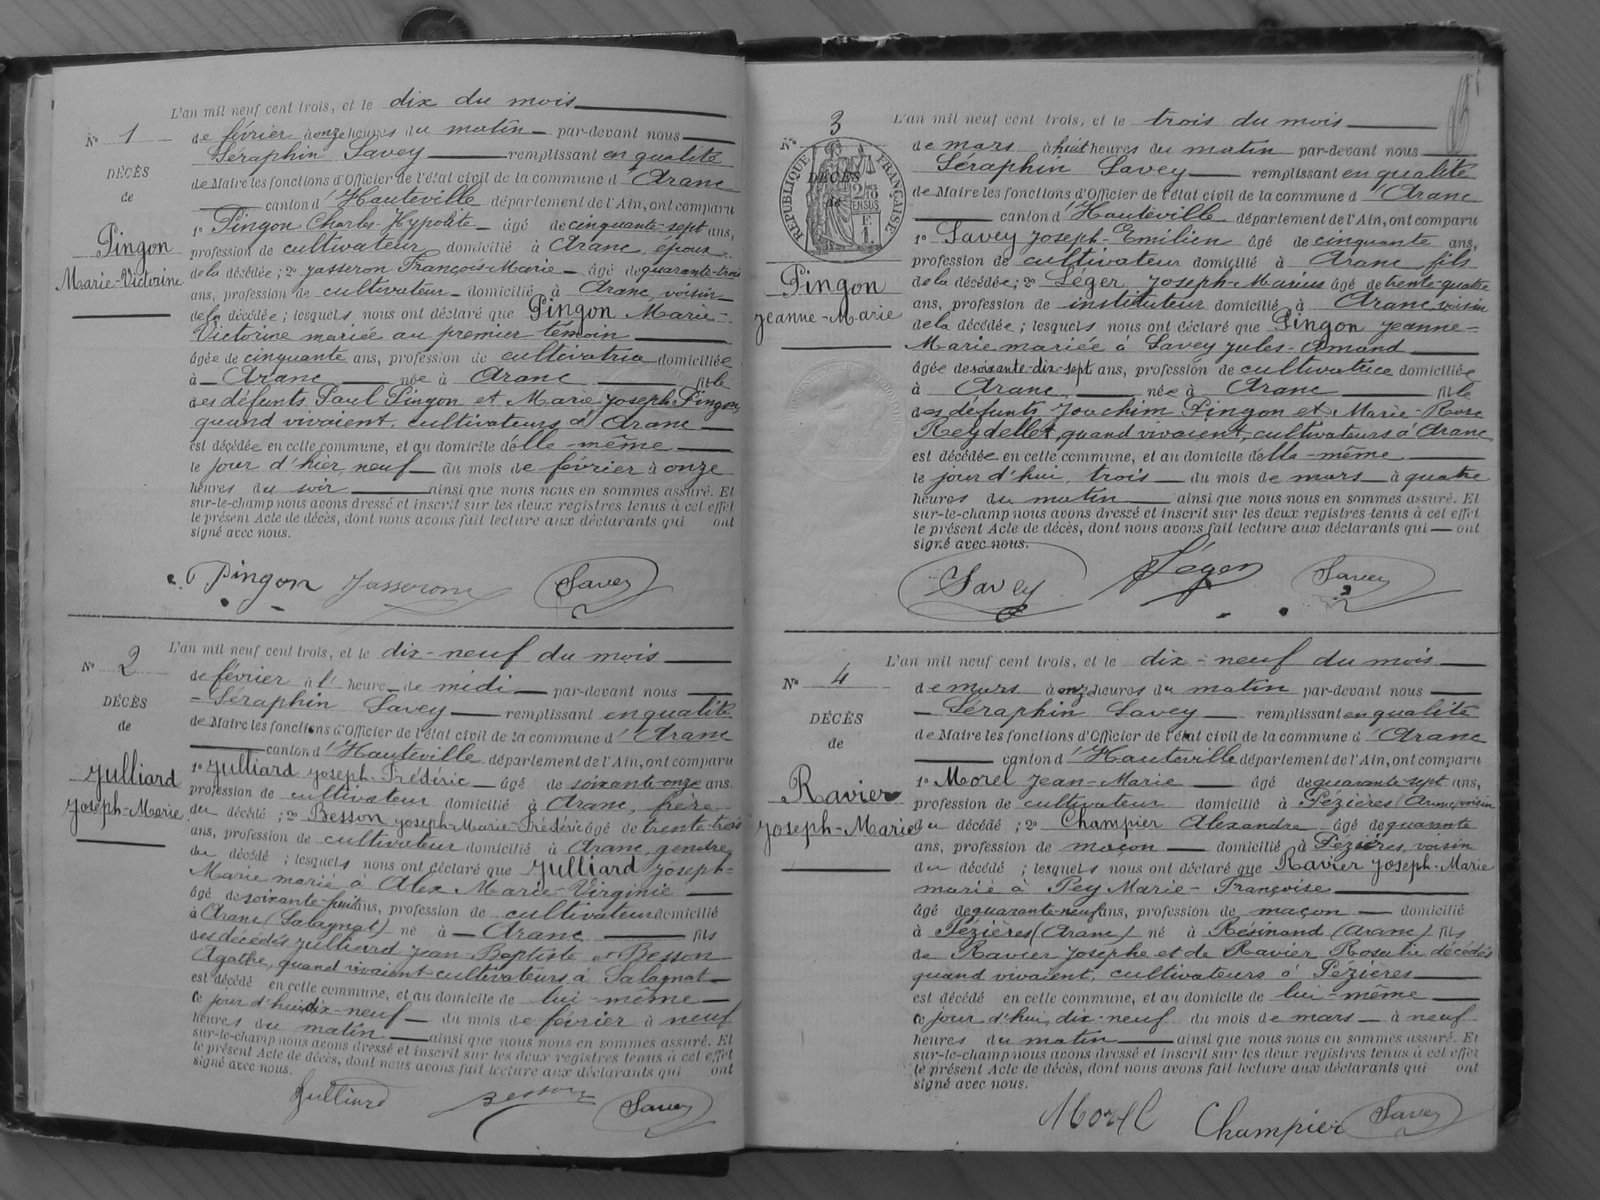 L'an mil neuf cent trois, et le dix du mois
N° 1
de février à onze heures du matin par-devant nous
Séraphin Savey remplissant en qualité
DÉCÈS
de Maire les fonctions d'Officier de l'état civil de la commune d'Aranc
de
canton d'Hauteville département de l'Ain, ont comparu
1° Pingon Charles-Hypolite âgé de cinquante-sept ans,
Pingon
profession de cultivateur domicilié à Aranc, époux
Marie-Victorine
de la décédée; 2° Jasseron François-Marie âgé de quarante-trois
ans, profession de cultivateur domicilié à Aranc, voisin
de la décédée; lesquels nous ont déclaré que Pingon Marie-
Victorine mariée au premier témoin
âgée de cinquante ans, profession de cultivatrice domiciliée
à Aranc née à Aranc fille
des défunts Paul Pingon et Marie Joseph Pingon,
quand vivaient, cultivateurs à Aranc
est décédée en cette commune, et au domicile d'elle-même
le jour d'hier, neuf du mois de février à onze
heures du soir ainsi que nous nous en sommes assuré. Et
sur-le-champ nous avons dressé et inscrit sur les deux registres tenus à cet effet
le présent Acte de décès, dont nous avons fait lecture aux déclarants qui ont
signé avec nous.
Pingon Jasseron Savey
L'an mil neuf cent trois, et le dix-neuf du mois
N° 2
de février à l'heure de midi par-devant nous
Séraphin Savey remplissant en qualité
DÉCÈS
de Maire les fonctions d'Officier de l'état civil de la commune d'Aranc
de
canton d'Hauteville département de l'Ain, ont comparu
1° Julliard Joseph-Frédéric âgé de soixante-onze ans
Julliard
profession de cultivateur domicilié à Aranc, frère
Joseph-Marie
du décédé; 2° Besson Joseph-Marie-Frédéric âgé de trente-trois
ans, profession de cultivateur domicilié à Aranc, gendre
du décédé; lesquels nous ont déclaré que Julliard Joseph-
Marie marié à Alex Marie-Virginie
âgé de soixante-huit ans, profession de cultivateur domicilié
à Aranc (Salagnat) né à Aranc fils
des décédés Julliard Jean-Baptiste et Besson
Agathe, quand vivaient cultivateurs à Salagnat
est décédé en cette commune, et au domicile de lui-même
ce jour d'hui, dix-neuf du mois de février à neuf
heures du matin ainsi que nous nous en sommes assuré. Et
sur-le-champ nous avons dressé et inscrit sur les deux registres tenus à cet effet
le présent Acte de décès, dont nous avons fait lecture aux déclarants qui ont
signé avec nous.
Julliard Besson Savey
L'an mil neuf cent trois, et le trois du mois
N° 3
de mars à huit heures du matin par-devant nous
Séraphin Savey remplissant en qualité
RÉPUBLIQUE FRANÇAISE
DÉCÈS
de
de Maire les fonctions d'Officier de l'état civil de la commune d'Aranc
canton d'Hauteville département de l'Ain, ont comparu
1° Savey Joseph-Emilien âgé de cinquante ans,
profession de cultivateur domicilié à Aranc, fils
Pingon
de la décédée; 2° Léger Joseph-Marius âgé de trente-quatre
ans, profession de instituteur domicilié à Aranc, voisin
Jeanne-Marie
de la décédée; lesquels nous ont déclaré que Pingon Jeanne-
Marie mariée à Savey Jules-Amand
âgée de soixante-dix-sept ans, profession de cultivatrice domiciliée
à Aranc née à Aranc fille
des défunts Joachim Pingon et Marie-Rose
Reydellet, quand vivaient, cultivateurs à Aranc
est décédée en cette commune, et au domicile d'elle-même
le jour d'hui, trois du mois de mars à quatre
heures du matin ainsi que nous nous en sommes assuré. Et
sur-le-champ nous avons dressé et inscrit sur les deux registres tenus à cet effet
le présent Acte de décès, dont nous avons fait lecture aux déclarants qui ont
signé avec nous.
Savey Léger Savey
L'an mil neuf cent trois, et le dix-neuf du mois
N° 4
de mars à onze heures du matin par-devant nous
Séraphin Savey remplissant en qualité
DÉCÈS
de Maire les fonctions d'Officier de l'état civil de la commune d'Aranc
de
canton d'Hauteville département de l'Ain, ont comparu
1° Morel Jean-Marie âgé de quarante-sept ans,
Ravier
profession de cultivateur domicilié à Pézières (Aranc), voisin
Joseph-Marie
du décédé; 2° Champier Alexandre âgé de quarante
ans, profession de maçon domicilié à Pézières, voisin
du décédé; lesquels nous ont déclaré que Ravier Joseph-Marie
marié à Pey Marie-Françoise
âgé de quarante-neuf ans, profession de maçon domicilié
à Pézières (Aranc) né à Résinand (Aranc) fils
de Ravier Josephe et de Ravier Rosalie décédés
quand vivaient, cultivateurs à Pézières
est décédé en cette commune, et au domicile de lui-même
ce jour d'hui, dix-neuf du mois de mars à neuf
heures du matin ainsi que nous nous en sommes assuré. Et
sur-le-champ nous avons dressé et inscrit sur les deux registres tenus à cet effet
le présent Acte de décès, dont nous avons fait lecture aux déclarants qui ont
signé avec nous.
Morel Champier Savey